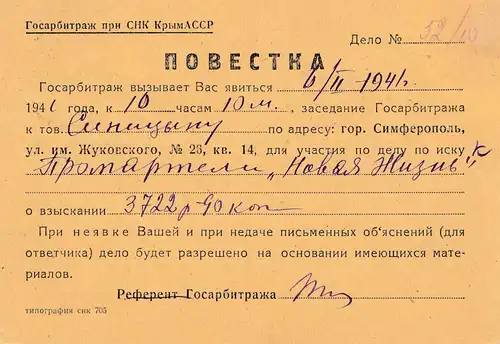 Госарбитраж при СНК КрымАССР
Дело № 52/10
ПОВЕСТКА
Госарбитраж вызывает Вас явиться 6/II-1941г.
1941 года, к 10 часам 10 м., заседание Госарбитража
к тов. Синицыну по адресу: гор. Симферополь,
ул. им. Жуковского, № 23, кв. 14, для участия по делу по иску к
Промартели „Новая Жизнь"
о взыскании 3722 р 90 коп
При неявке Вашей и при недаче письменных об'яснений (для
ответчика) дело будет разрешено на основании имеющихся мате-
риалов.
Референт Госарбитража
типография снк 705